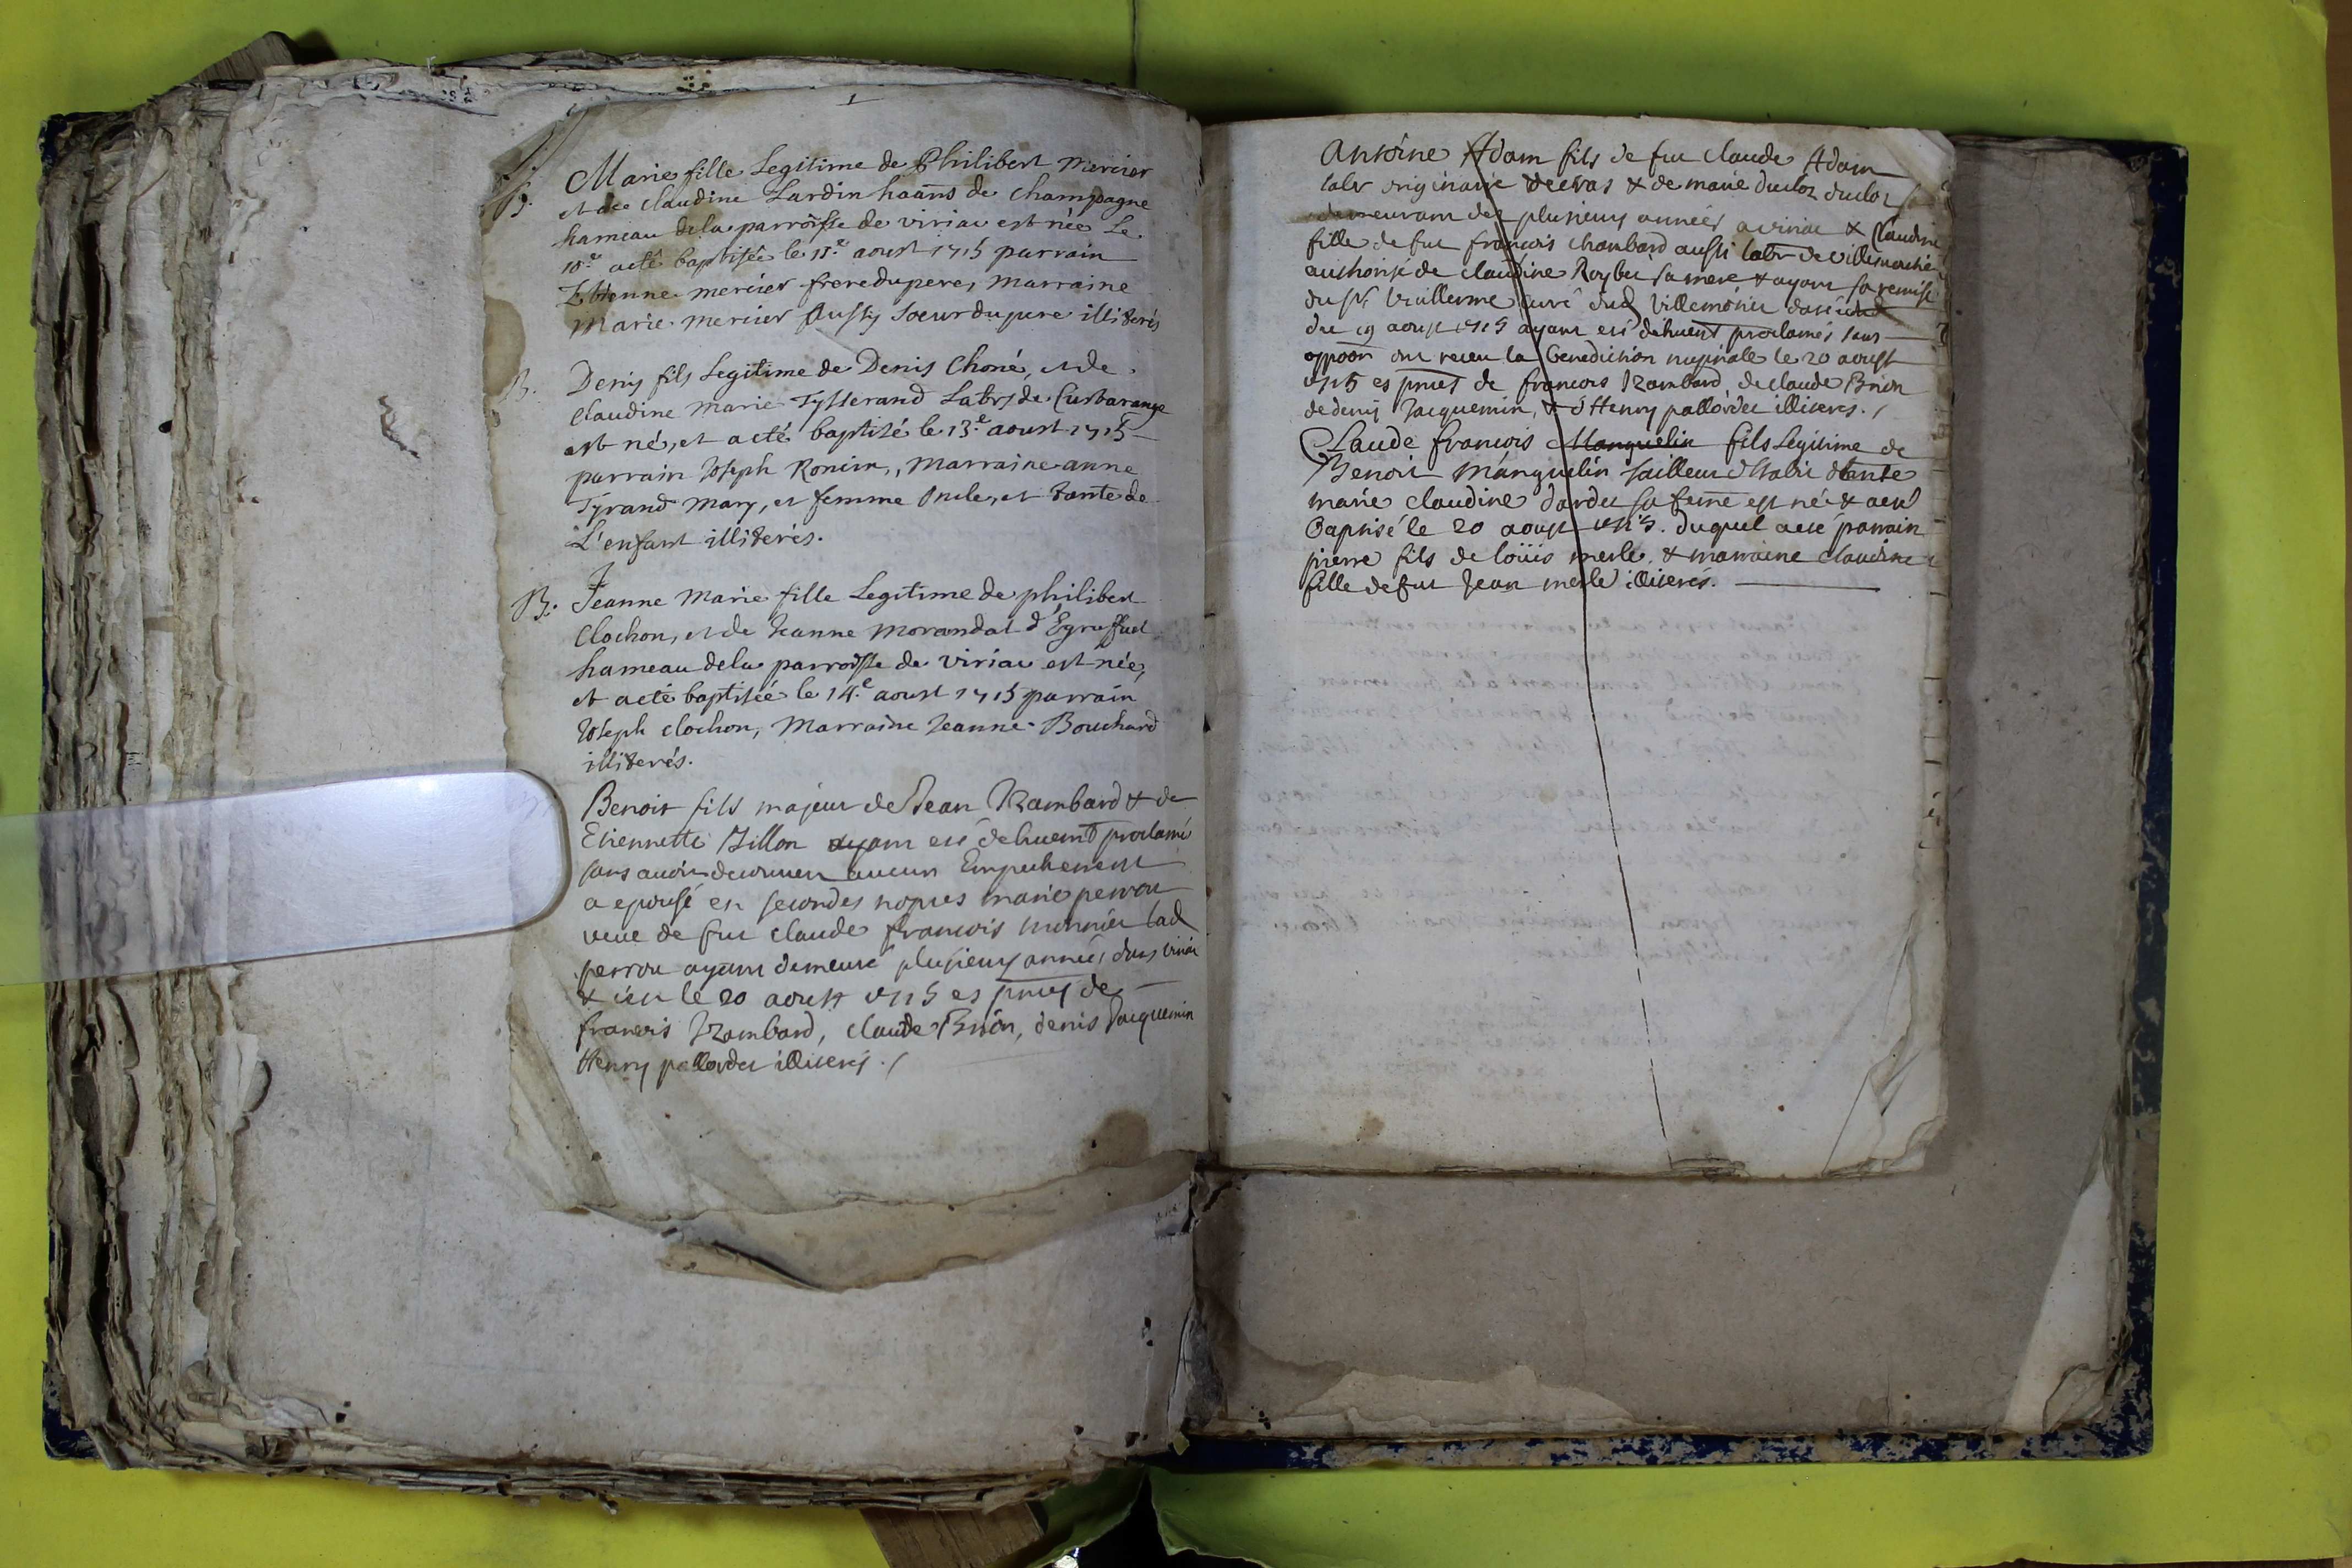 1
B.
Marie fille Legitime de Philibert Mercier
et de claudine Lardin haans de champagne
hameau dela parroisse de viriac est née Le
10e a eté baptisée le 11e aoust 1715 parrain
Etienne mercier frere du pere, marraine
Marie mercier Aussy soeur du pere illiterés
B.
Denis fils Legitime de Denis Choné, et de
Claudine Marie Tysserand Labrs de Curbarange
est né, et a eté baptisé le 13e aoust 1715
parrain Joseph Ronion, Marraine anne
Tyrand Mary, et femme oncle, et tante de
L'enfant illiterés.
B.
Jeanne Marie fille Legitime de philibert
Clochon, et de Jeanne morandat d'Egreffuel
hameau dela parroisse de viriac est née,
et a eté baptisée le 14e aoust 1715 parrain
Joseph clochon, Marraine Jeanne Bouchard
illiterés.
Benoit fils majeur de Jean Rambard & de
Etiennette Billon ayant eté dehuemt proclamé
sans avoir decouver aucun Empechement
a epousé en secondes nopces marie perrou
veue de fut claude francois monnier lad
perrou ayant demeuré plusieurs années dans viriac
& le 20 aoust 1715 es pnces de
francois Rambard, claude Brion, denis Jacquemin
Henry pallordet illiterés ./
Antoine Adam fils de fut claude Adam
labr originaire de cras & de marie duclos duclos
demeurant des plusieurs années a viriac & Claudine
fille de fut francois chambard aussi labr de villemotier
authorisé de claudine Roybet sa mere & ayant sa remise
du Sr Vuillerme curé dud Villemotier daté
du 19 aoust 1715 ayant eté dehuemt proclamés sans
oppoon ont receu la benediction nuptiale le 20 aoust
1715 es pnces de francois Rambard, de claude Brion
de denis Jacquemin, & d'Henry pallordet illiteres ./
Claude francois Manguelin fils Legitime de
Benoit Manguelin tailleur d'habit & de
marie claudine dardet sa feme est né & a eté
Baptisé le 20 aoust 1715. duquel a eté parrain
pierre fils de loüis merle & marraine claudine
fille de fut Jean merle illiterés.